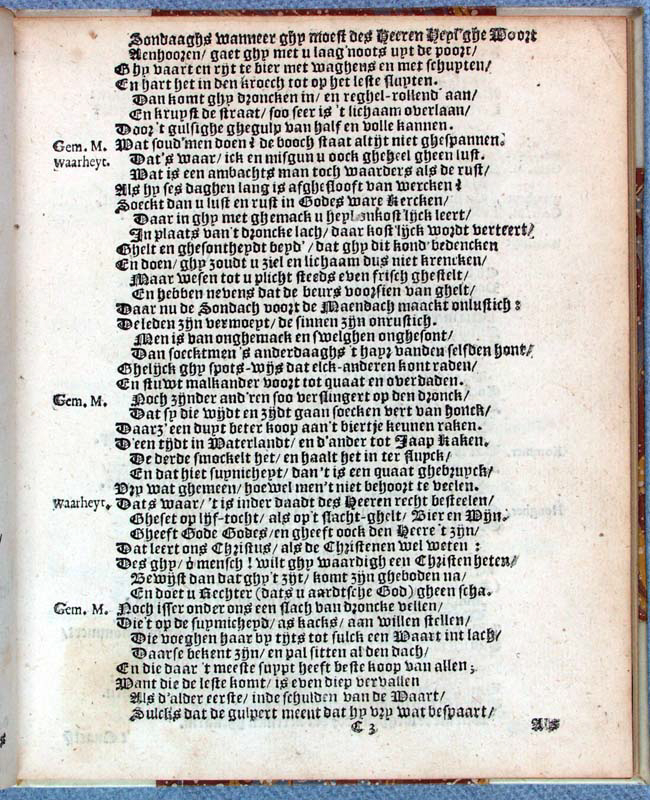 Sondaaghs wanneer ghy moest des Heeren Heyl'ghe Woort
Aenhooren/ gaet ghy met u laag'noots uyt de poort/
Ghy vaart en rijt te bier met waghens en met schuyten/
En hart het in den kroech tot op het leste sluyten.
Dan komt ghy droncken in/ en reghel-rollend' aan/
En kruyst de straat/ soo seer is 't lichaam overlaan/
Door 't gulsighe ghegulp van half en volle kannen.
Gem. M. Wat soud'men doen? de booch staat altijt niet ghespannen.
Waarheyt. Dat's waar/ ick en misgun u oock gheheel gheen lust.
Wat is een ambachts man toch waarders als de rust/
Als hy ses daghen lang is afghesloost van wercken?
Soeckt dan u lust en rust in Godes ware Kercken/
Daar in ghy met ghemack u heyl onkost'lijck leert/
In plaats van 't droncke lach/ daar kost'lijck wordt verteert/
Ghelt en ghesontheydt beyd'/ dat ghy dit kond bedencken
En doen/ ghy zoudt u ziel en lichaam dus niet krencken/
Maar wesen tot u plicht steeds even frisch ghestelt/
En hebben nevens dat de beurs voorsien van ghelt/
Daar nu de Sondach voort de Maendach maackt onlustich:
De leden zijn vermoeyt/ de sinnen zijn onrustich.
Men is van onghemack en swelghen onghesont/
Dan soecktmen 's anderdaaghs 't hayr vanden selfden hont/
Ghelijck ghy spots-wijs dat elck-anderen kont raden/
En stuwt malkander voort tot quaat en overdaden.
Gem. M. Noch zijnder and'ren soo verslingert op den dronck/
Dat sy die wijdt en zijdt gaan soecken vert van honck/
Daarz' een duyt beter koop aan 't biertje keunen raken.
D'een tijdt in Waterlandt/ en d'ander tot Jaap Kaken.
De derde smockelt het/ en haalt het in ter sluyck/
En dat hiet suynicheyt/ dan 't is een quaat ghebruyck/
Vry wat ghemeen/ hoewel men 't niet behoort te veelen.
Waarheyt. Dats waar/ 't is inder daadt des Heeren recht besteelen/
Gheset op lijf-tocht/ als op 't slacht-ghelt/ Bier en Wijn.
Gheeft Gode Godes/ en gheeft oock den Heere 't zijn/
Dat leert ons Christus/ als de Christenen wel weten:
Des ghy/ ó mensch! wilt ghy waardigh een Christen heten/
Bewijst dan dat ghy 't zijt/ komt zijn gheboden na/
En doet u Rechter (dats u aardtsche God) gheen scha.
Gem. M. Noch isser onder ons een slach van droncke vellen/
Die't op de suynicheyd/ as kacks/ aan willen stellen/
Die voeghen haar by tijts tot sulck een Waart int lach/
Daarse bekent zijn/ en pal sitten al den dach/
En die daar 't meeste suypt heeft beste koop van allen;
Want die de leste komt/ is even diep vervallen
Als d'alder eerste/ inde schulden van de Waart/
Sulcks dat de gulpert meent dat hy vry wat bespaart/
C 3 Als